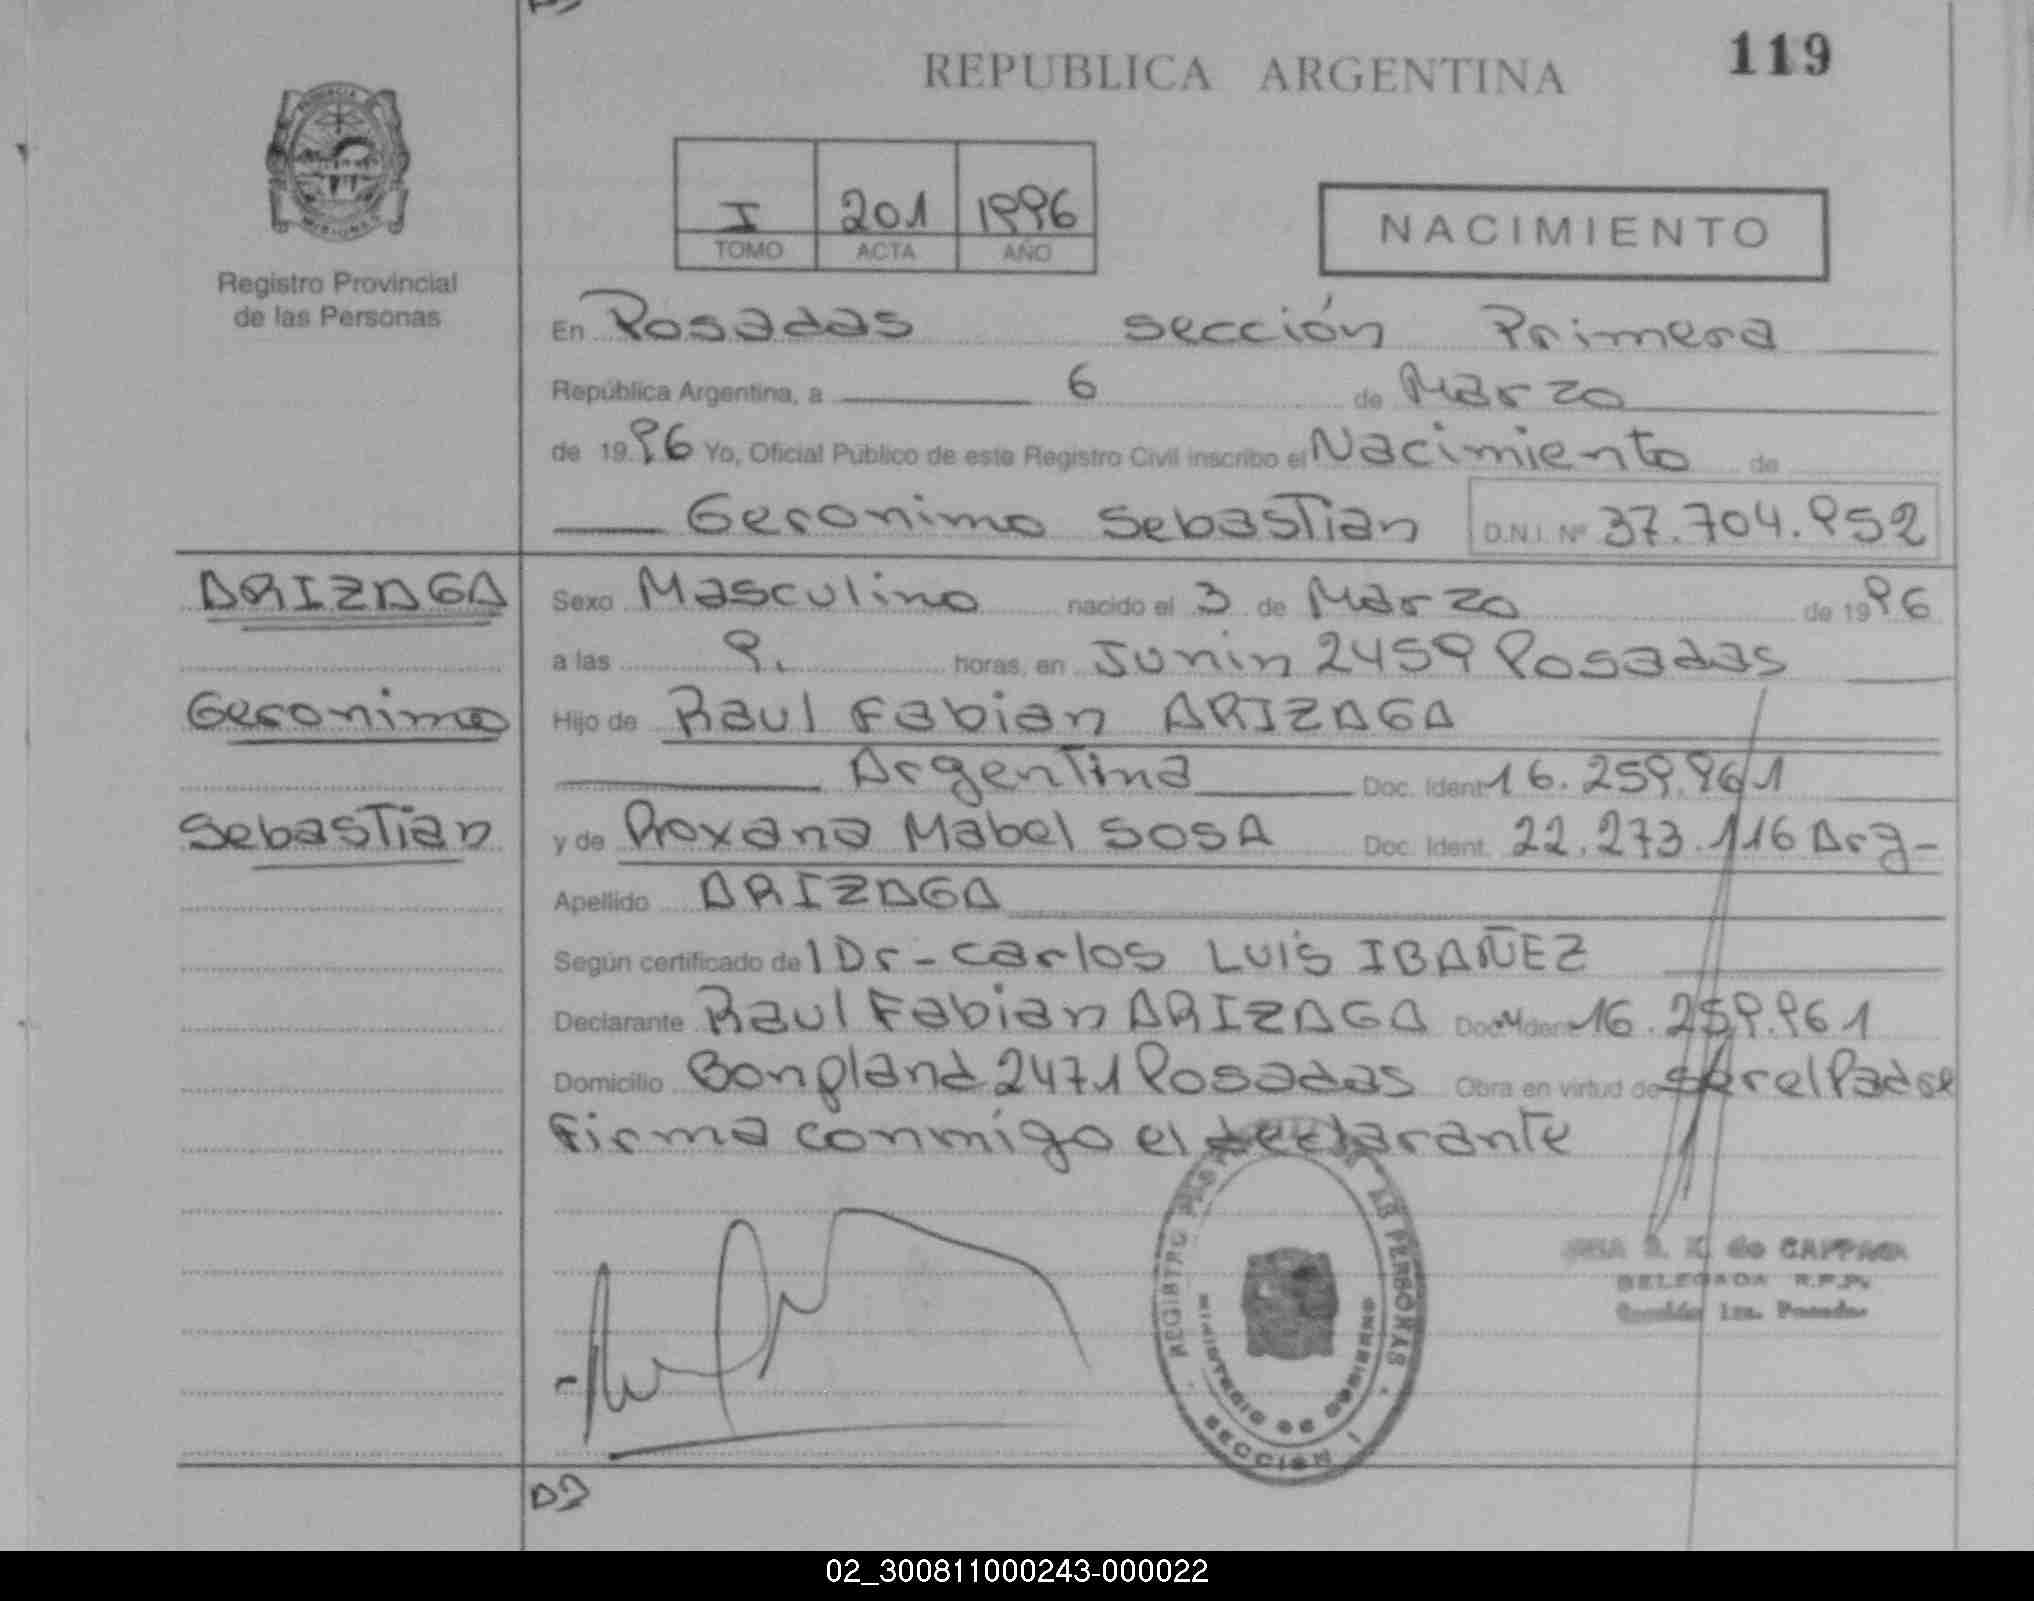 REPUBLICA ARGENTINA
119
I 201 1996
TOMO ACTA AÑO
NACIMIENTO
Registro Provincial
de las Personas
En Posadas sección Primera
República Argentina, a 6 de Marzo
de 1996 Yo, Oficial Público de este Registro Civil inscribo el Nacimiento de
Geronimo Sebastian D.N.I. Nº 37.704.952
ARIZAGA
Sexo Masculino nacido el 3 de Marzo de 1996
a las 9. horas, en Junin 2459 Posadas
Geronimo
Hijo de Raul Fabian ARIZAGA
Argentina Doc. Ident 16.259.961
Sebastian
y de Roxana Mabel SOSA Doc. Ident. 22.273.116 Arg-
Apellido ARIZAGA
Según certificado del Dr-Carlos LUIS IBAÑEZ
Declarante Raul Fabian ARIZAGA Doc. Ident 16.259.961
Domicilio Bonpland 2471 Posadas Obra en virtud de ser el Padre
Firma conmigo el declarante
REGISTRO DE LAS PERSONAS
MINISTERIO DE GOBIERNO
SECCION I
de CAPPAGA
DELEGADA R.P.P.
Sección 1ra. Posadas
02_300811000243-000022